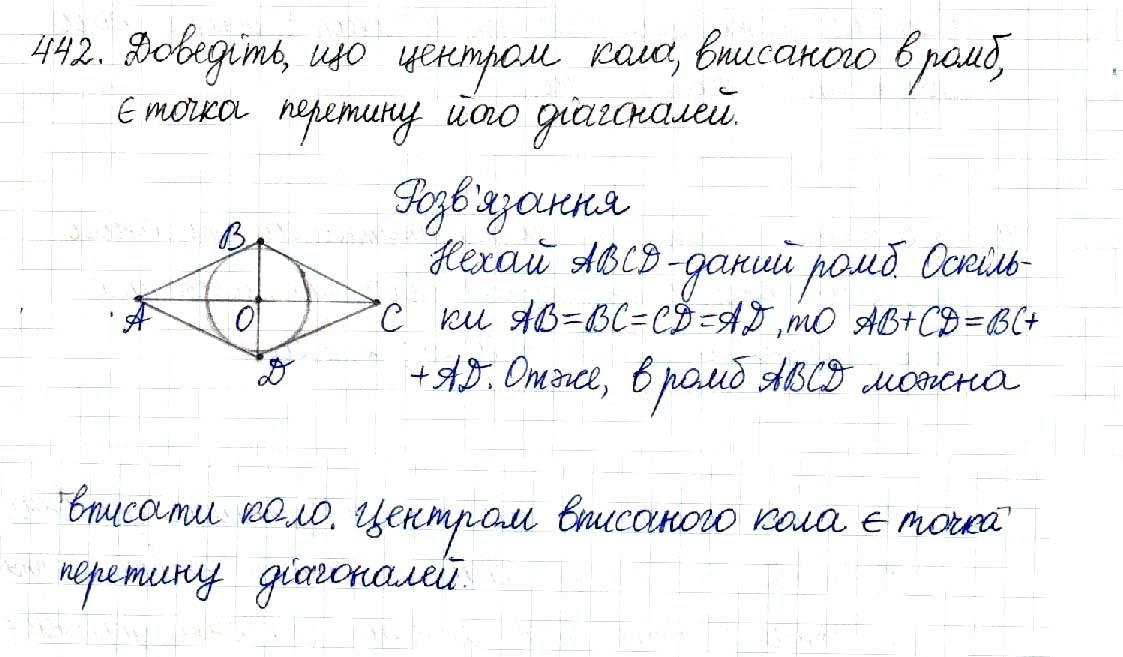 442. Доведіть, що центром кола, вписаного в ромб,
є точка перетину його діагоналей.
Розв'язання
Нехай ABCD - даний ромб. Оскіль-
ки AB=BC=CD=AD, то AB+CD=BC+
+AD. Отже, в ромб ABCD можна
B
A
O
C
D
вписати коло. Центром вписаного кола є точка
перетину діагоналей.